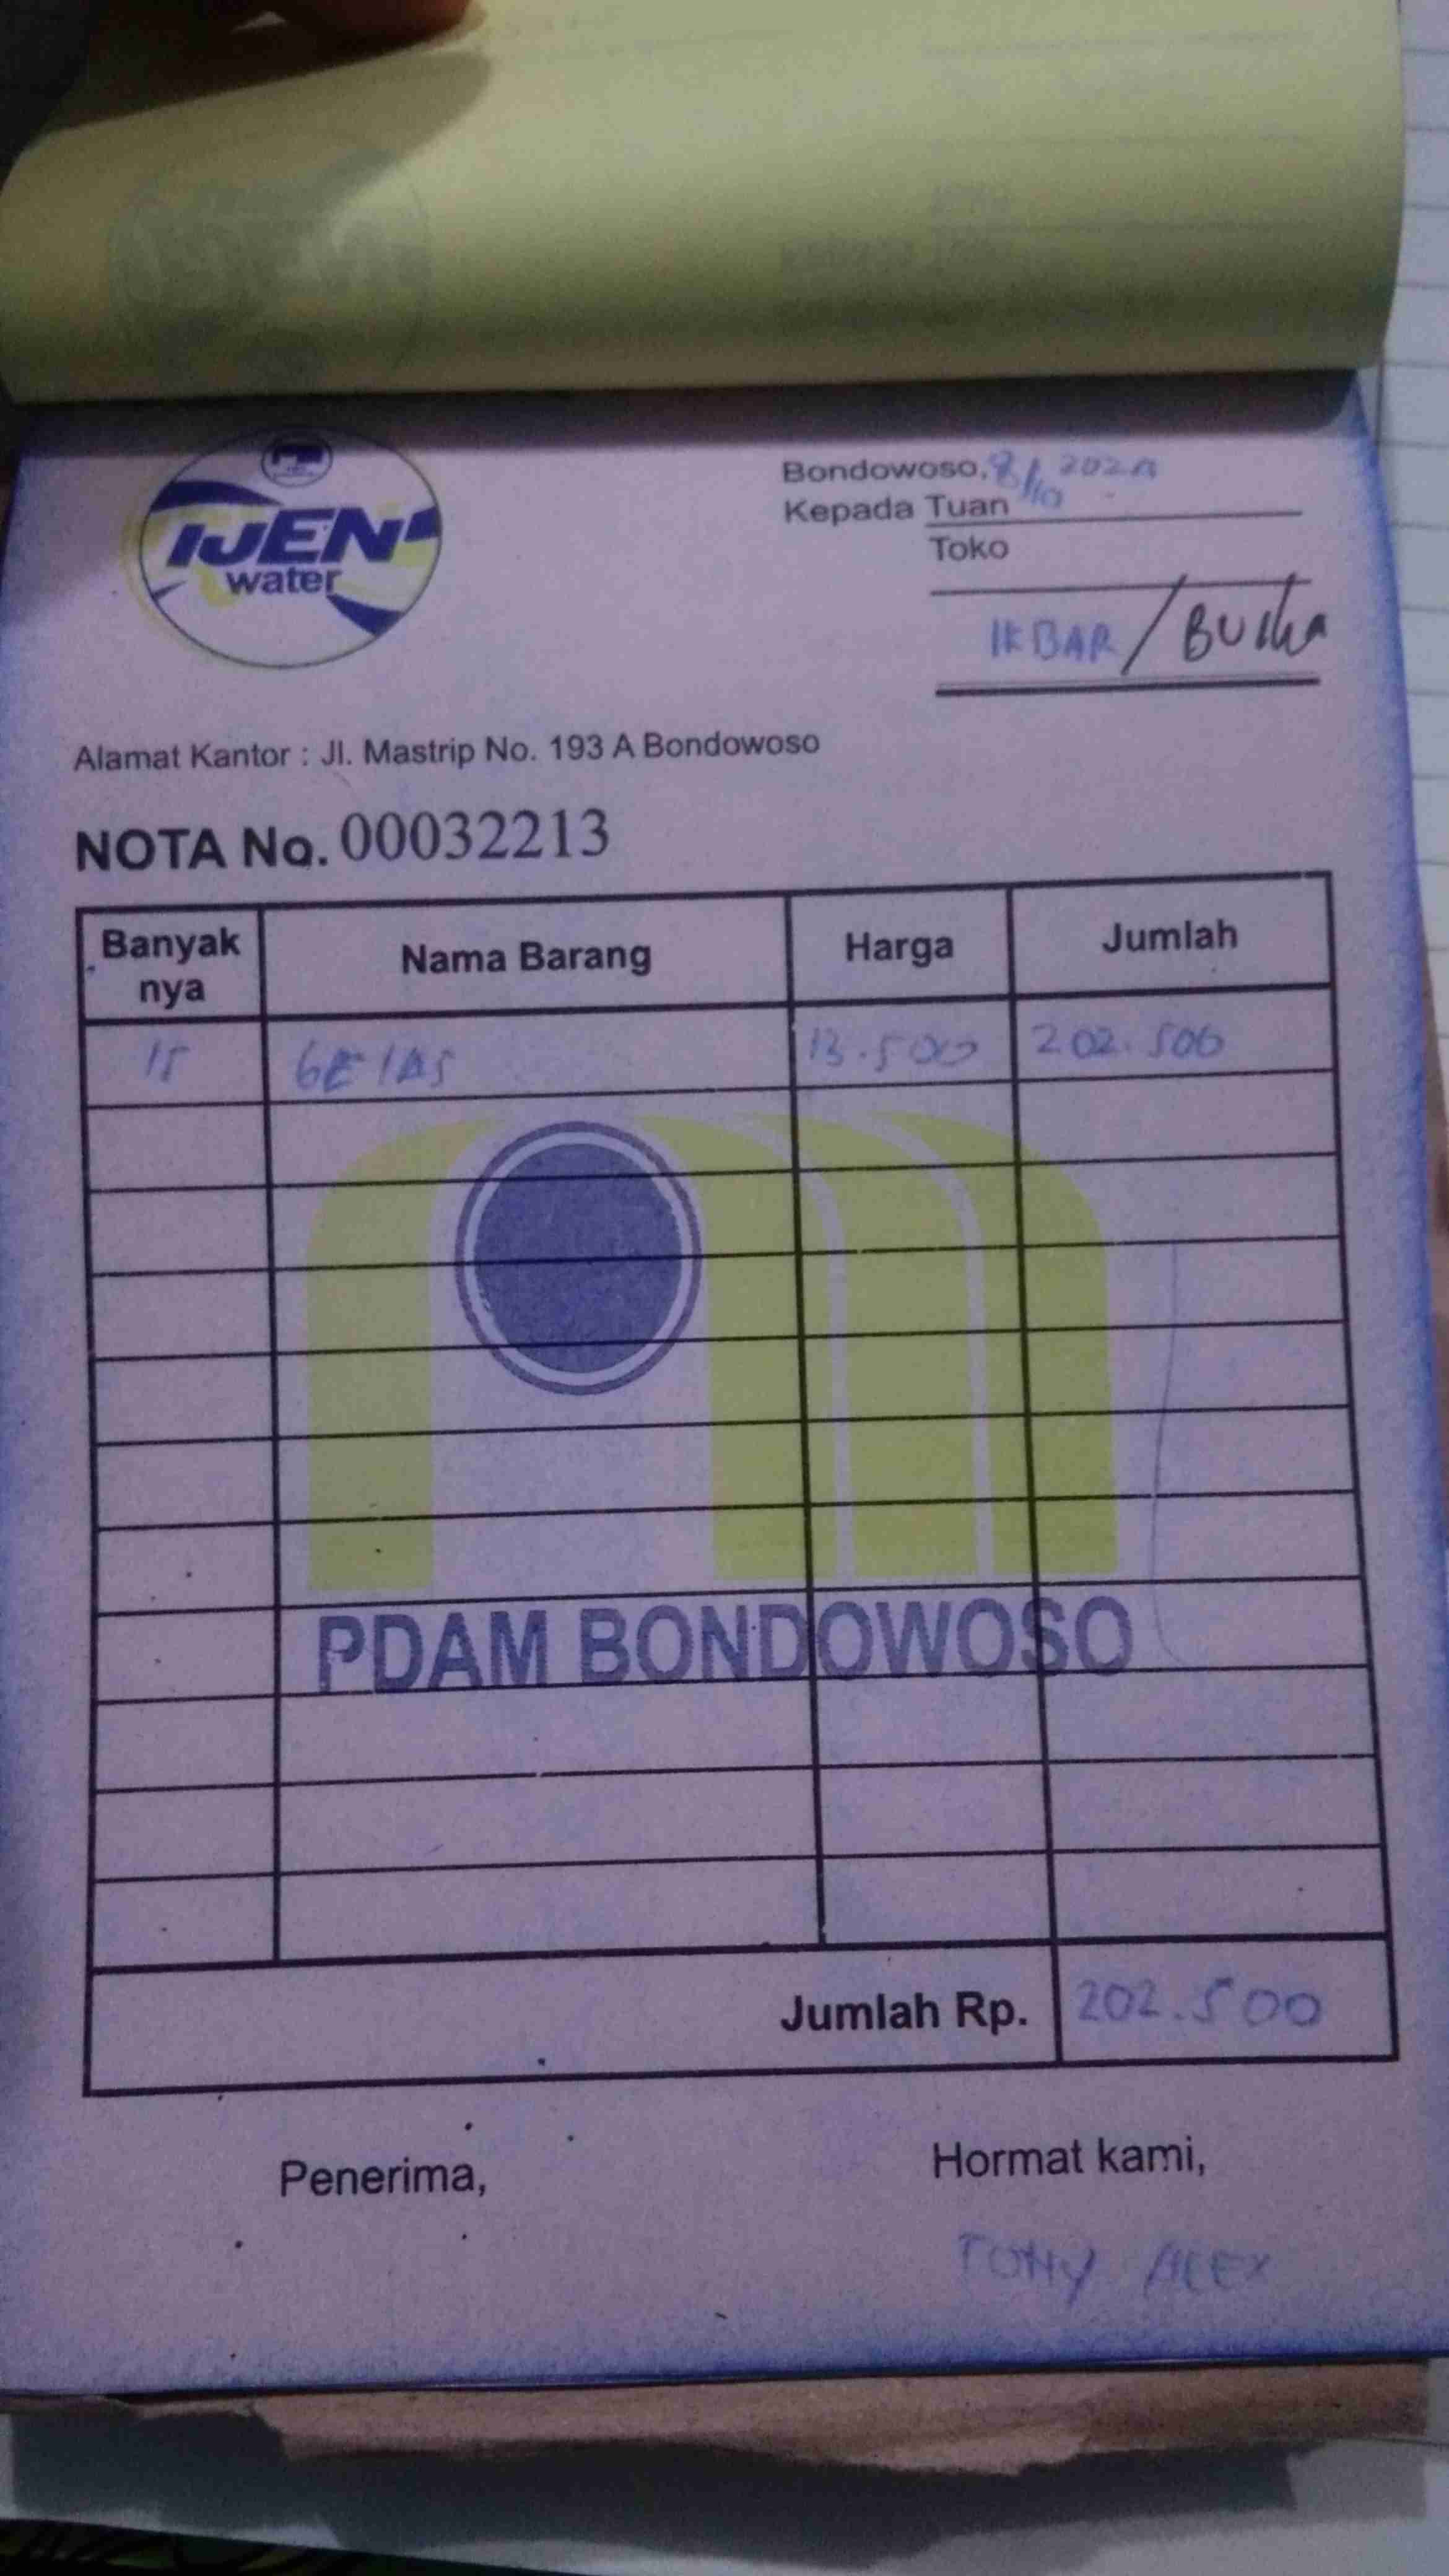 IJEN
water
Bondowoso, 8/10 2024
Kepada Tuan
Toko
IKBAR /
Alamat Kantor : Jl. Mastrip No. 193 A Bondowoso
NOTA No. 00032213
Banyak nya Nama Barang Harga Jumlah
15 GELAS 13.500 202.500
PDAM BONDOWOSO
Jumlah Rp. 202.500
Penerima, Hormat kami,
TONY ALEX